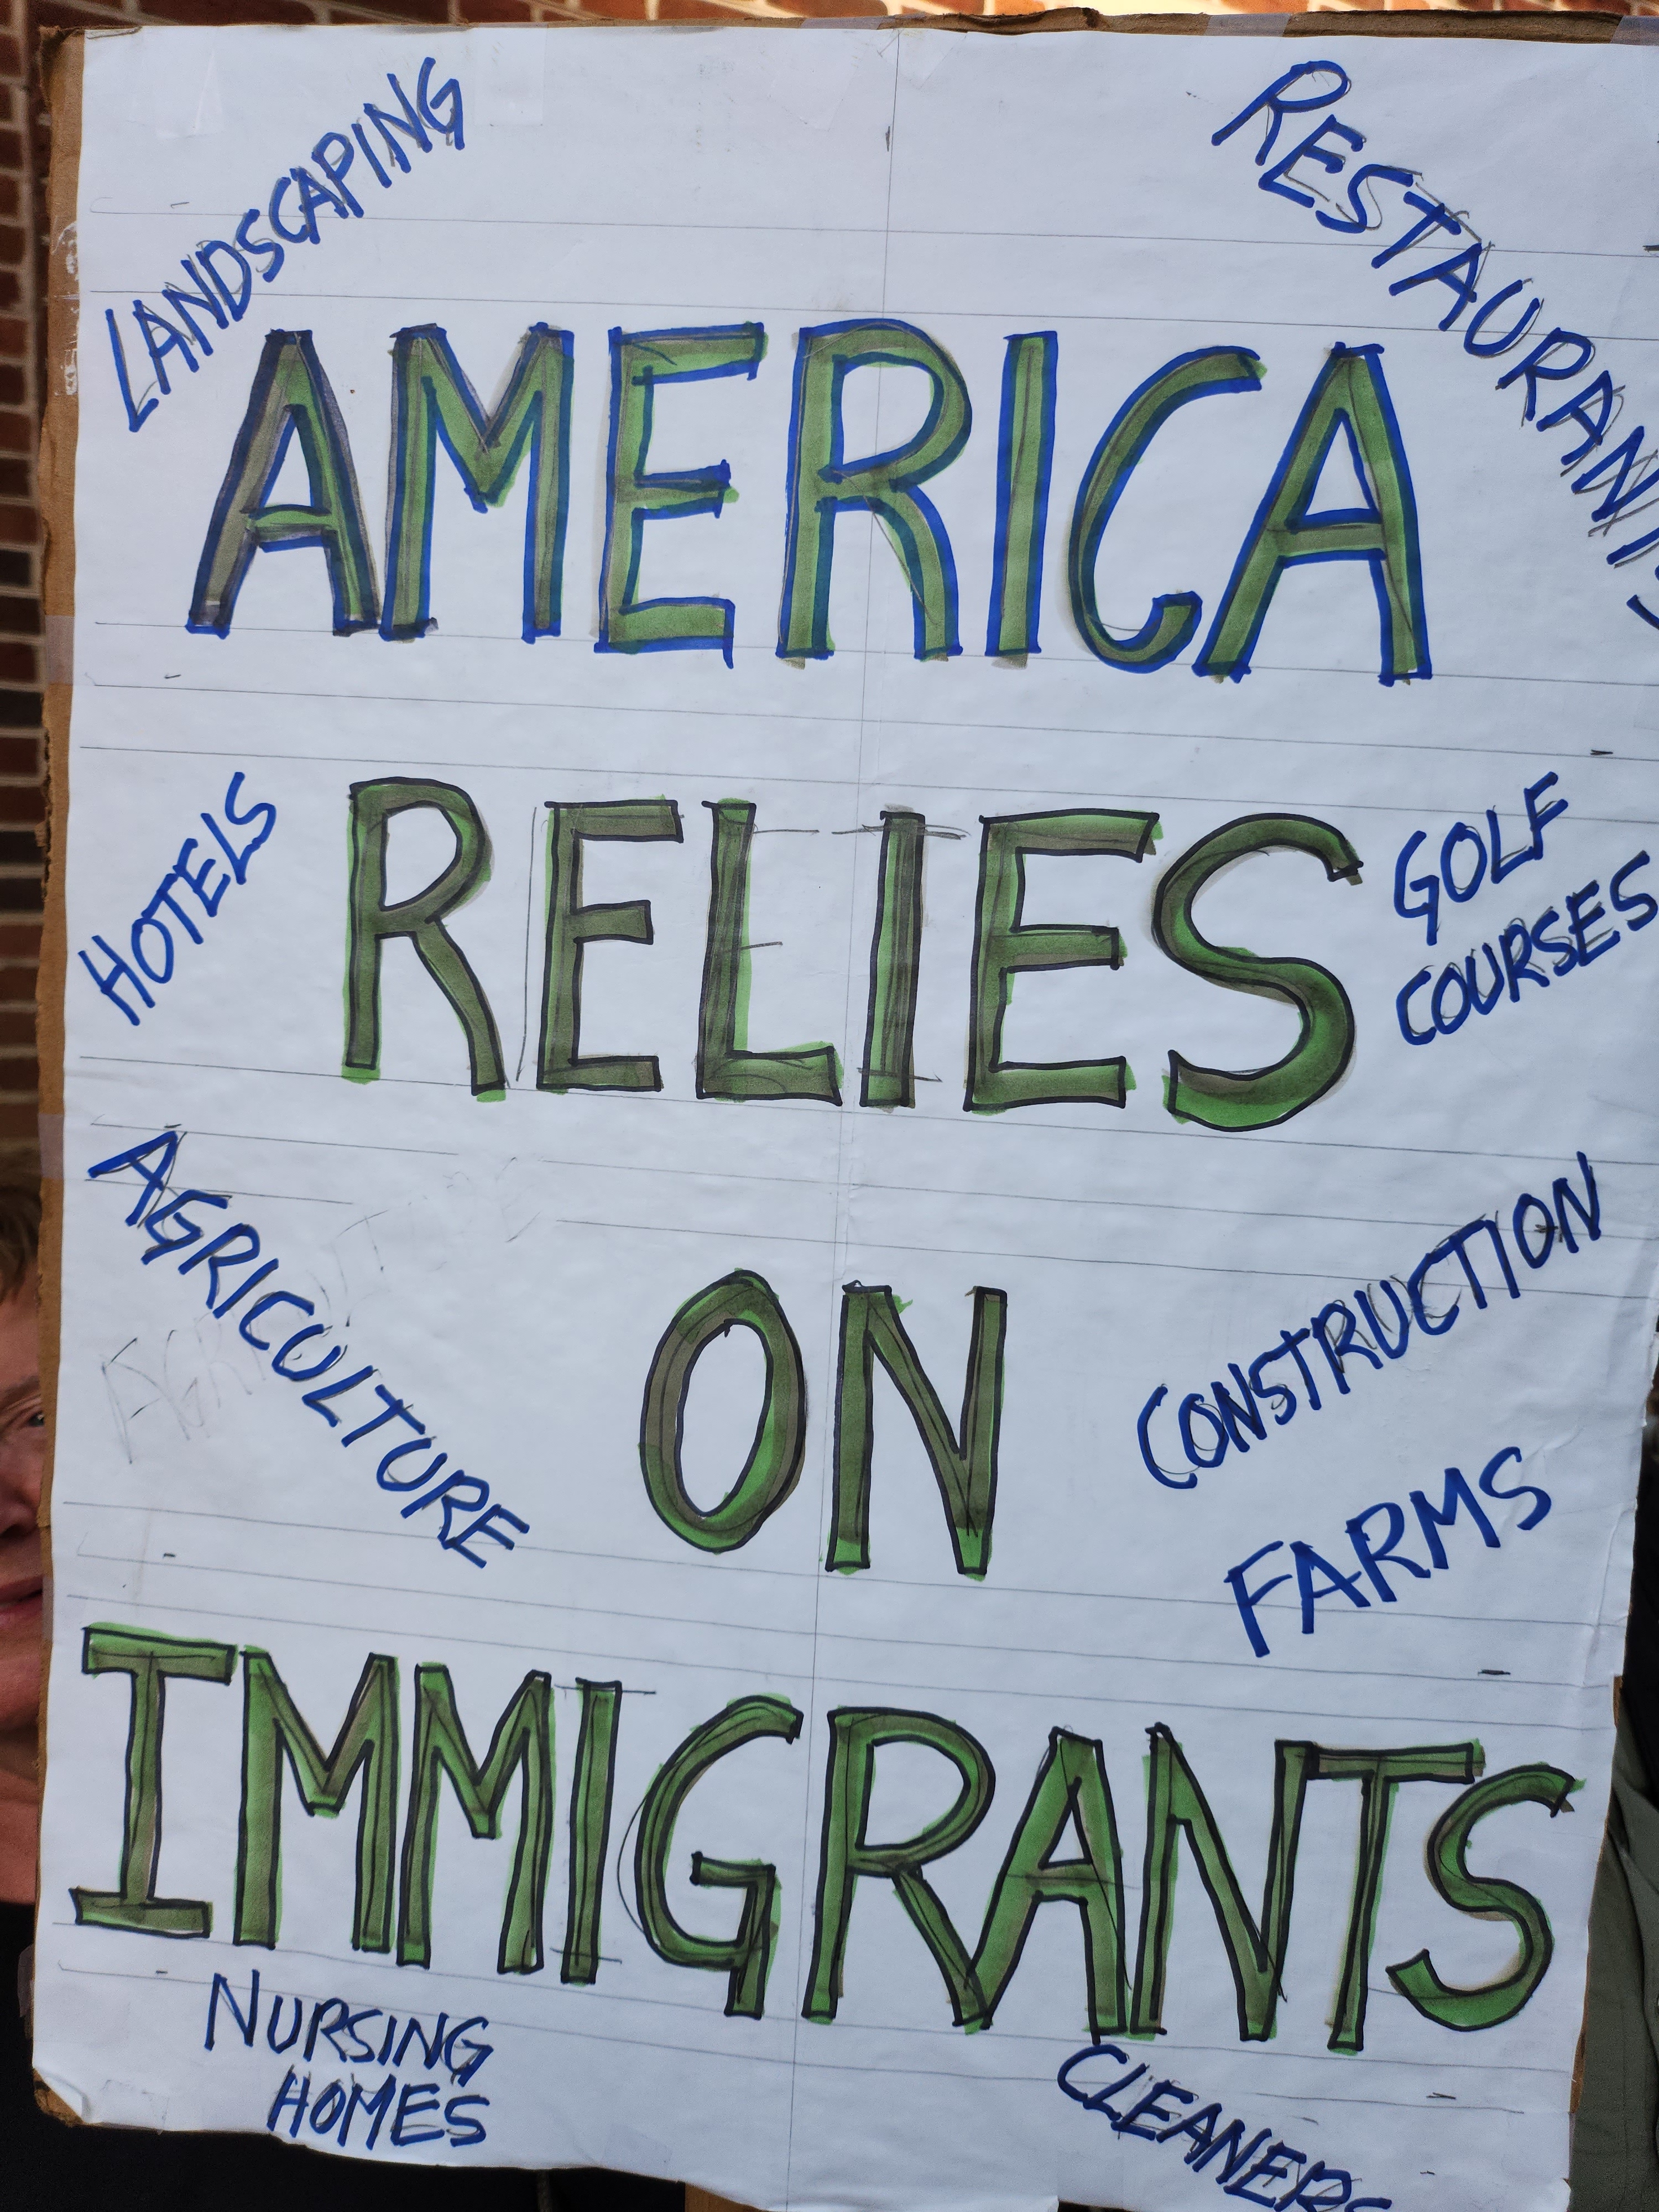 LANDSCAPING
RESTAURANTS
AMERICA
HOTELS
RELIES
GOLF
COURSES
AGRICULTURE
ON
CONSTRUCTION
FARMS
IMMIGRANTS
NURSING
HOMES
CLEANERS